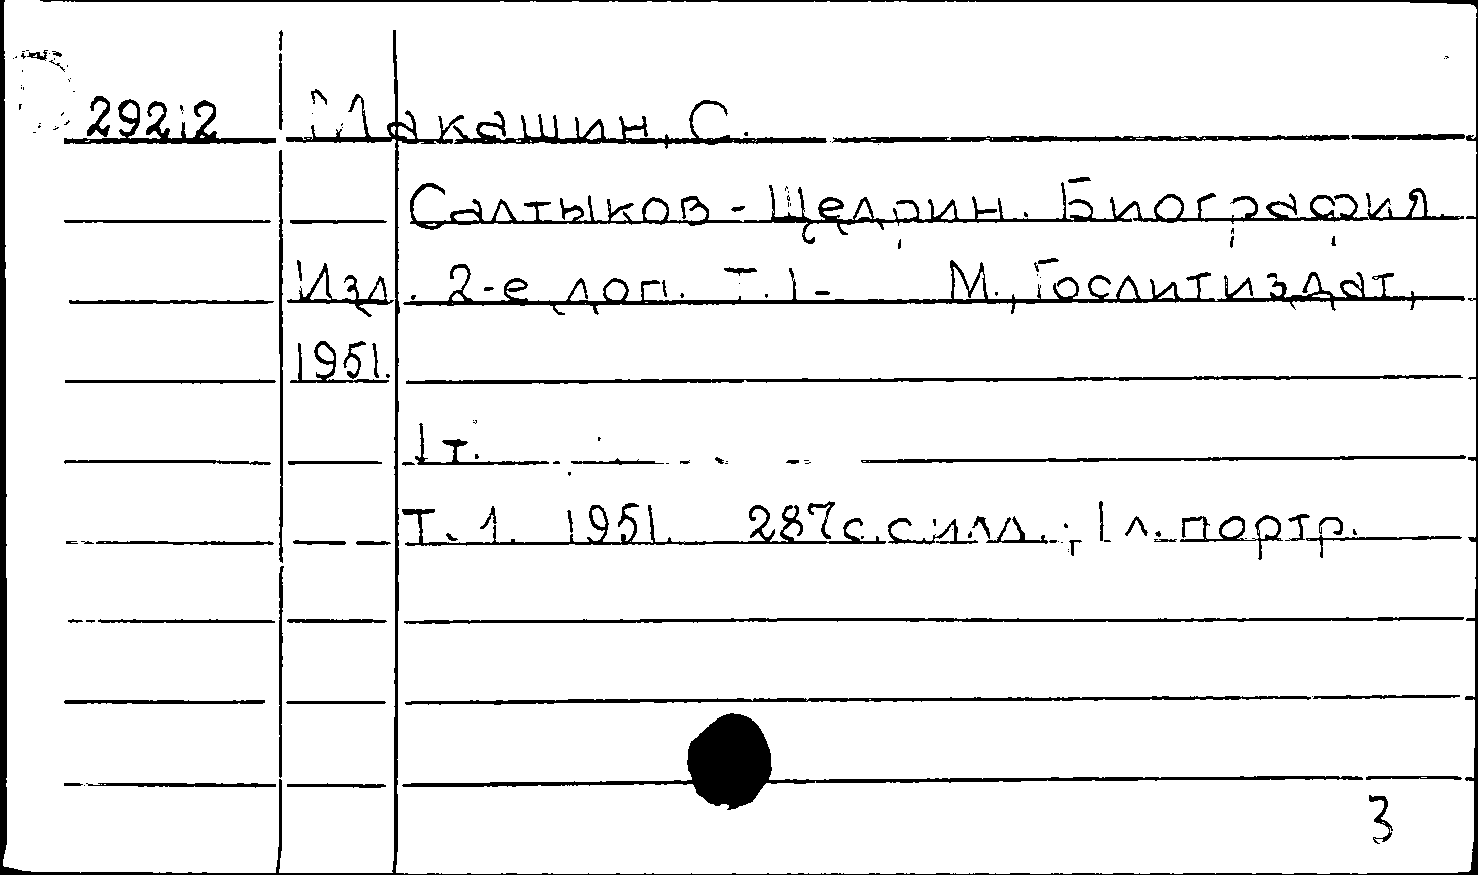 292i2 Макашин, С.
Салтыков-Щедрин. Биография.
Изд. 2-е доп. Т. 1- М., Гослитиздат,
1951.
1 т.
Т. 1. 1951. 287с.с илл.; 1 л. портр.
3